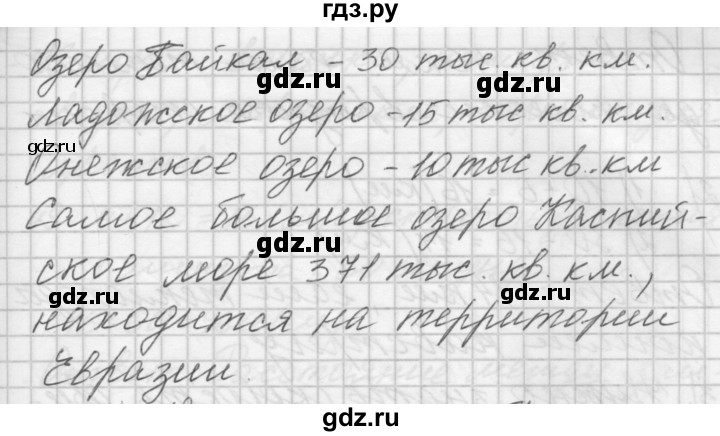 гдз.ру
Озеро Байкал - 30 тыс. кв. км.
gdz.ru gdz.ru
Ладожское озеро - 15 тыс кв. км.
Онежское озеро - 10 тыс кв. км
gdz.ru
Самое большое озеро Каспий-
gdz.ru
ское море 371 тыс. кв. км.,
gdz.ru gdz.ru
находится на территории
Евразии.
gdz.ru
gdz.ru